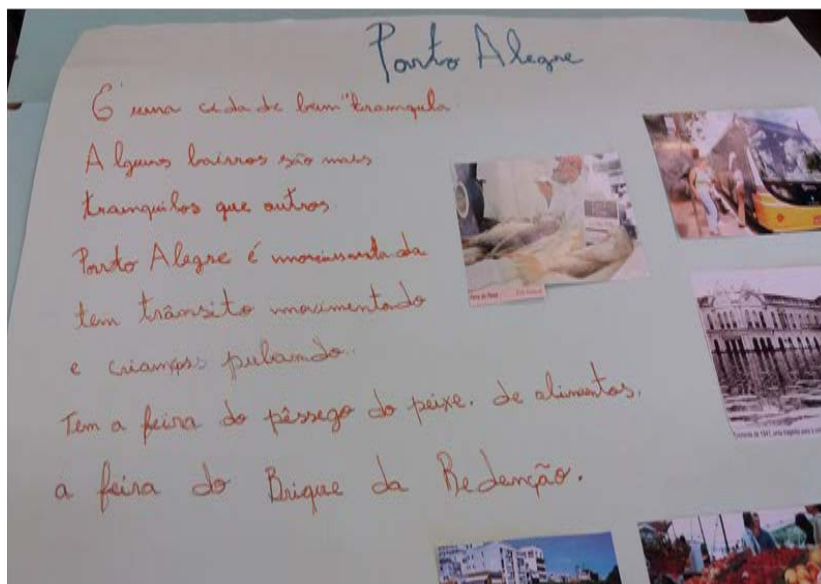 Porto Alegre
É uma cidade bem tranquila
Alguns bairros são mais
tranquilos que outros
Porto Alegre é movimentada
tem trânsito movimentado
e crianças pulando.
Tem a feira do pêssego do peixe. de alimentos.
a feira do Brique da Redenção.
Feira do Peixe
Enchente de 1941, uma tragédia para a